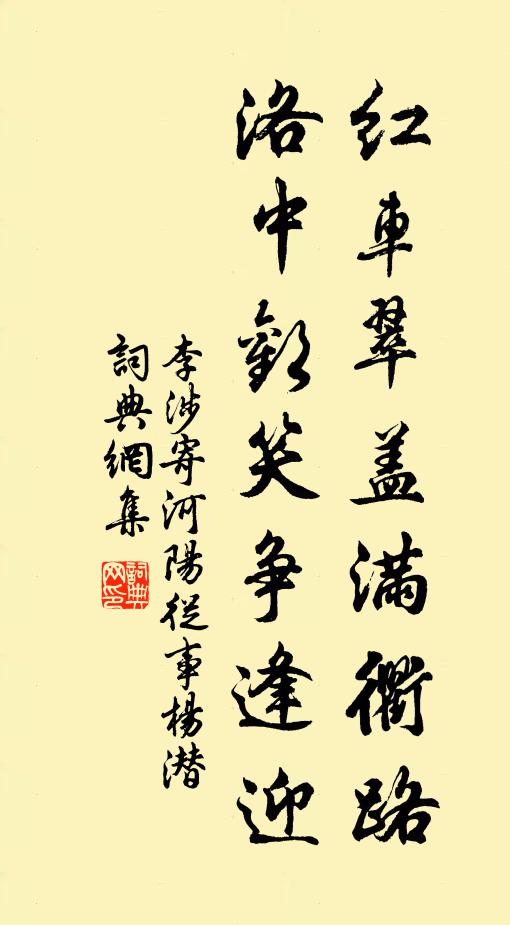 红車翠盖满衢路
洛中歡笑争逢迎
李涉寄河陽從事楊潜
詞典網集
詞典网印